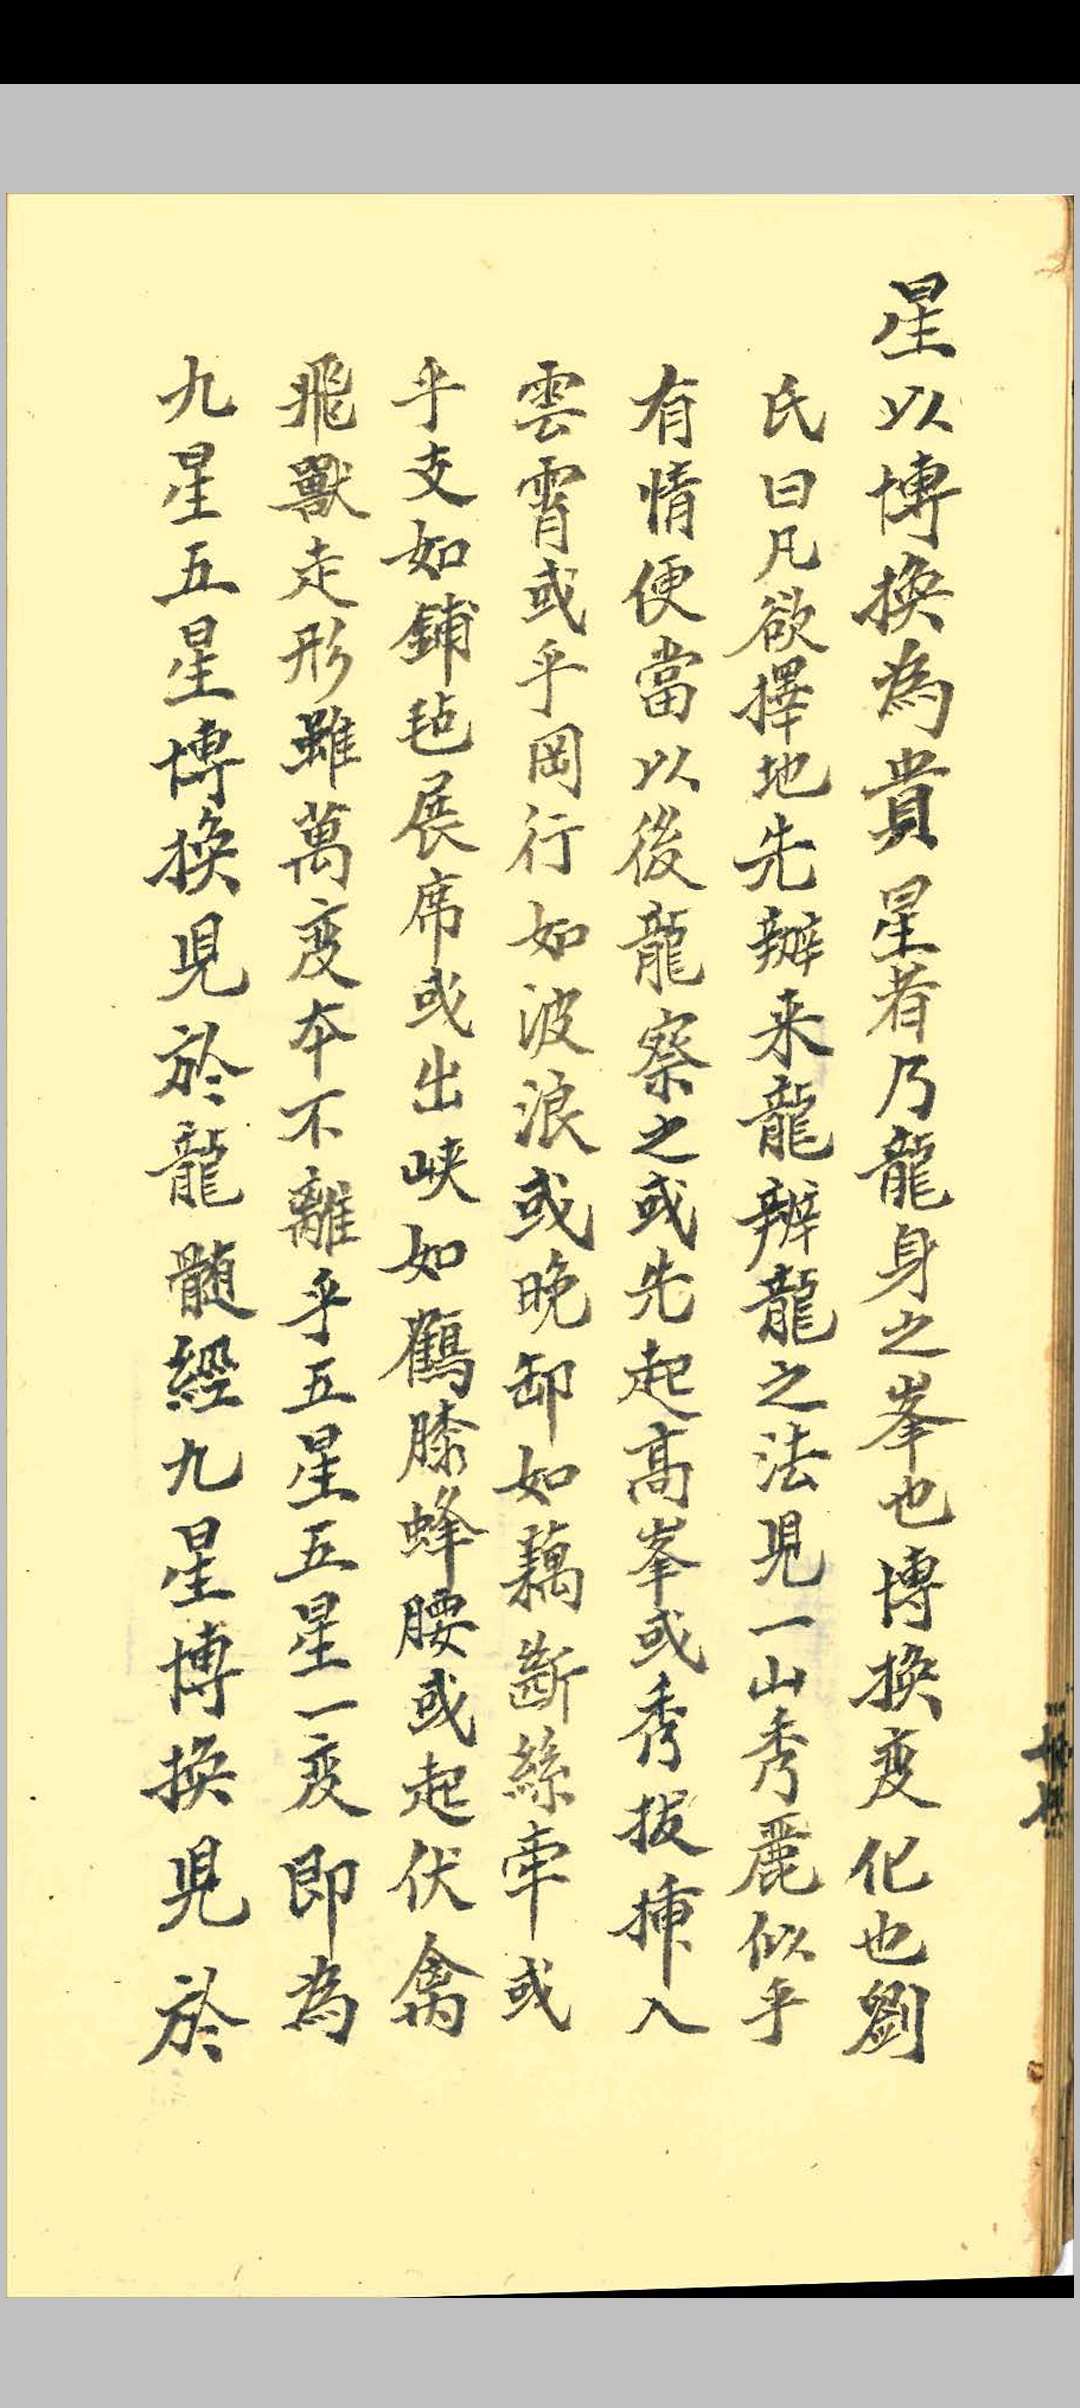 星以博換為貴星者乃龍身之峯也博換变化也劉
氏曰凡欲擇地先辦来龍辨龍之法見一山秀麗似乎
有情便當以後龍察之或先起高峯或秀拔揷入
雲霄或乎岡行如波浪或晚卸如藕斷絲牽或
乎支如鋪毡展席或出峡如鶴膝蜂腰或起伏禽
飛獸走形雖萬变夲不離乎五星五星一变即為
九星五星博換見於龍髄經九星博換見於